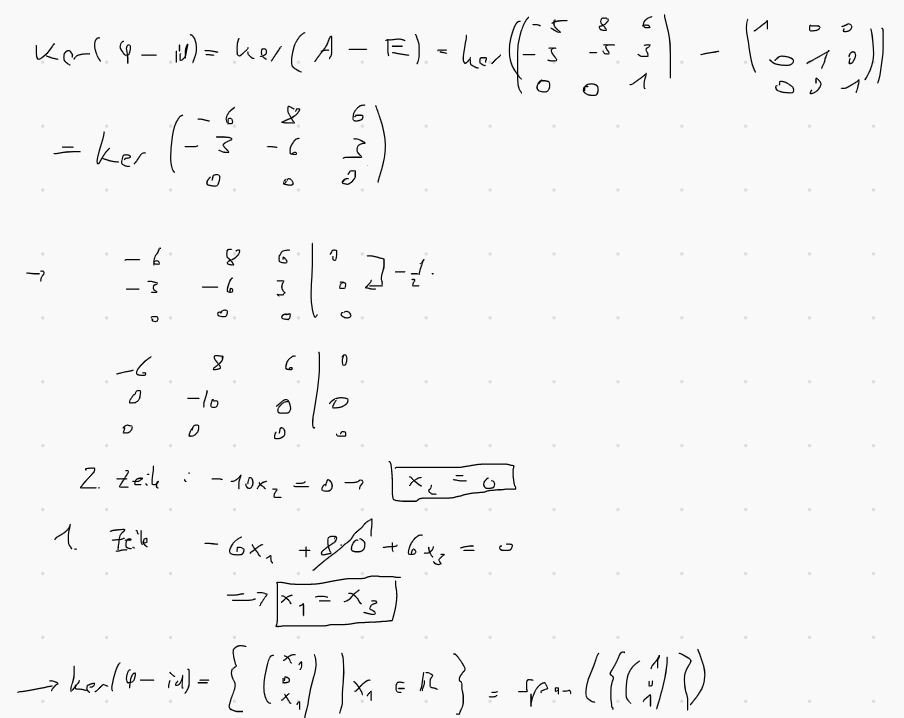 ker(φ − id) = ker(A − E) = ker((−5 8 6 −3 −5 3 0 0 1) − (1 0 0 0 1 0 0 0 1))
= ker (−6 8 6 −3 −6 3 0 0 0)
→ −6 8 6 | 0
−3 −6 3 | 0 −1/2 ·
0 0 0 | 0
−6 8 6 | 0
0 −10 0 | 0
0 0 0 | 0
2. Zeile : −10x₂ = 0 → x₂ = 0
1. Zeile −6x₁ + 8·0 + 6x₃ = 0
=> x₁ = x₃
→ ker(φ − id) = { (x₁ 0 x₁) | x₁ ∈ ℝ } = span({(1 0 1)})